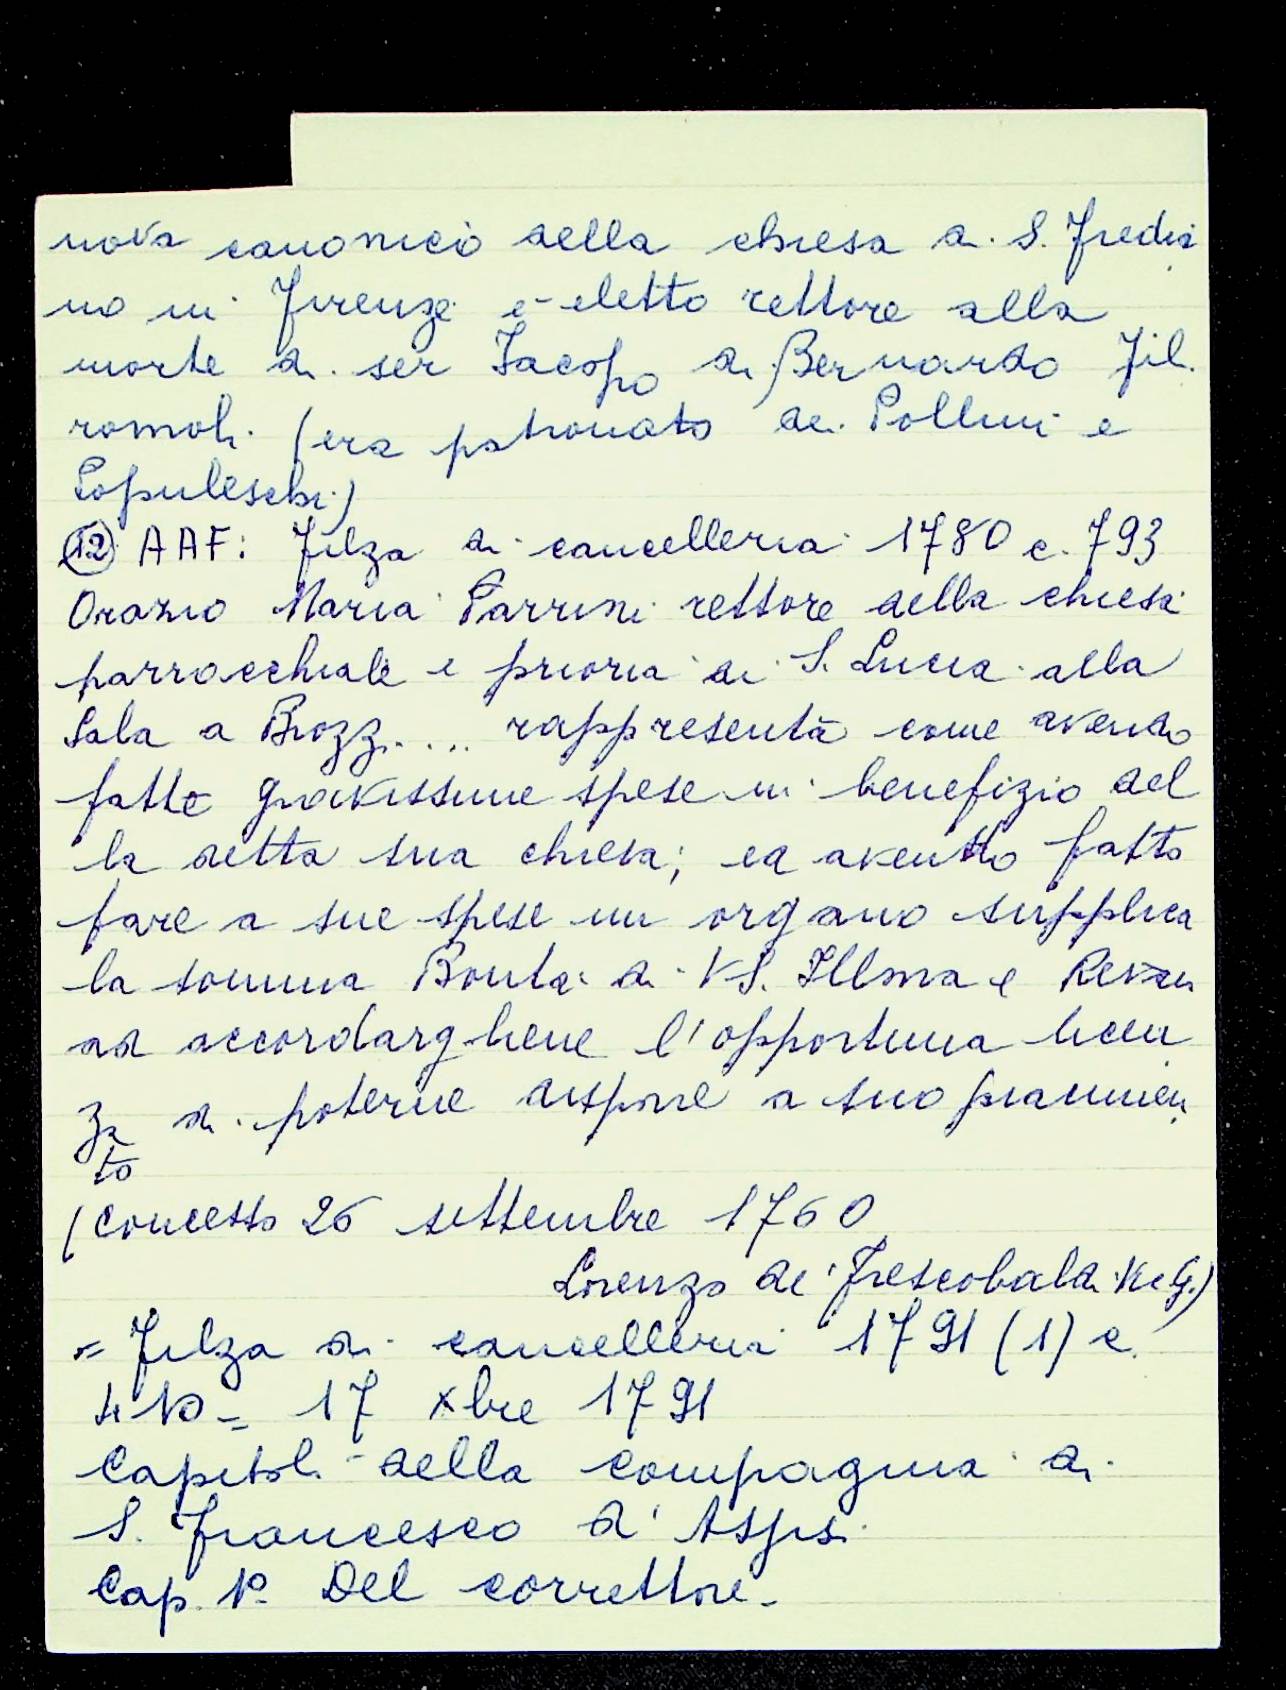 nova canonico della chiesa di S. Fredia
no in Firenze è eletto rettore alla
morte di ser Jacopo di Bernardo Fil.
romoli (era patronato dei Pollini e
Popoleschi)
(12) AAF: Filza di cancelleria 1780 c. 793
Orazio Maria Parrini rettore della chiesa
parrocchiale e prioria di S. Lucia alla
Sala a Brozzi.... rappresenta come avendo
fatte gravissime spese in benefizio del
la detta sua chiesa; ed avendo fatto
fare a sue spese un organo supplica
la somma Bontà di VS. Illma e
ad accordarghene l'opportuna licen
za di poterne disporre a suo piacimen
to
(Concesso 26 settembre 1760
Lorenzo de' Frescobaldi V. G.)
= Filza di cancelleria 1791 (1) c.
410 = 17 Xbre 1791
Capitoli della compagnia di
S. Francesco d'Assisi
Cap. 1º Del correttore.